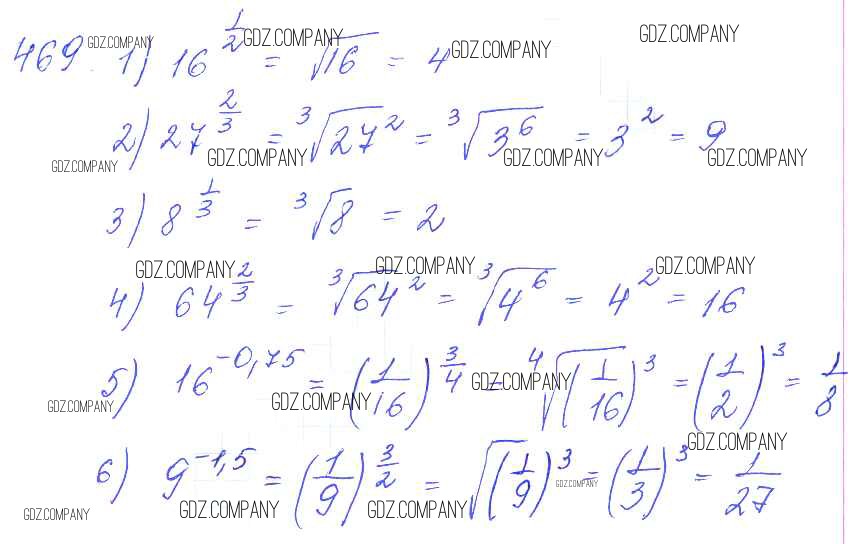 469. 1) 16^{\frac{1}{2}} = \sqrt{16} = 4
2) 27^{\frac{2}{3}} = \sqrt[3]{27^2} = \sqrt[3]{3^6} = 3^2 = 9
3) 8^{\frac{1}{3}} = \sqrt[3]{8} = 2
4) 64^{\frac{2}{3}} = \sqrt[3]{64^2} = \sqrt[3]{4^6} = 4^2 = 16
5) 16^{-0,75} = (\frac{1}{16})^{\frac{3}{4}} = \sqrt[4]{(\frac{1}{16})^3} = (\frac{1}{2})^3 = \frac{1}{8}
6) 9^{-1,5} = (\frac{1}{9})^{\frac{3}{2}} = \sqrt{(\frac{1}{9})^3} = (\frac{1}{3})^3 = \frac{1}{27}
GDZ.COMPANY GDZ.COMPANY GDZ.COMPANY GDZ.COMPANY
GDZ.COMPANY GDZ.COMPANY GDZ.COMPANY GDZ.COMPANY
GDZ.COMPANY GDZ.COMPANY GDZ.COMPANY
GDZ.COMPANY GDZ.COMPANY GDZ.COMPANY
GDZ.COMPANY
GDZ.COMPANY GDZ.COMPANY GDZ.COMPANY GDZ.COMPANY